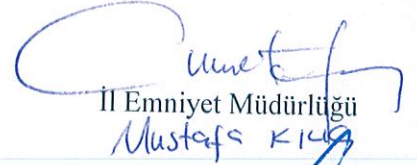 İl Emniyet Müdürlüğü
Mustafa Kılıç